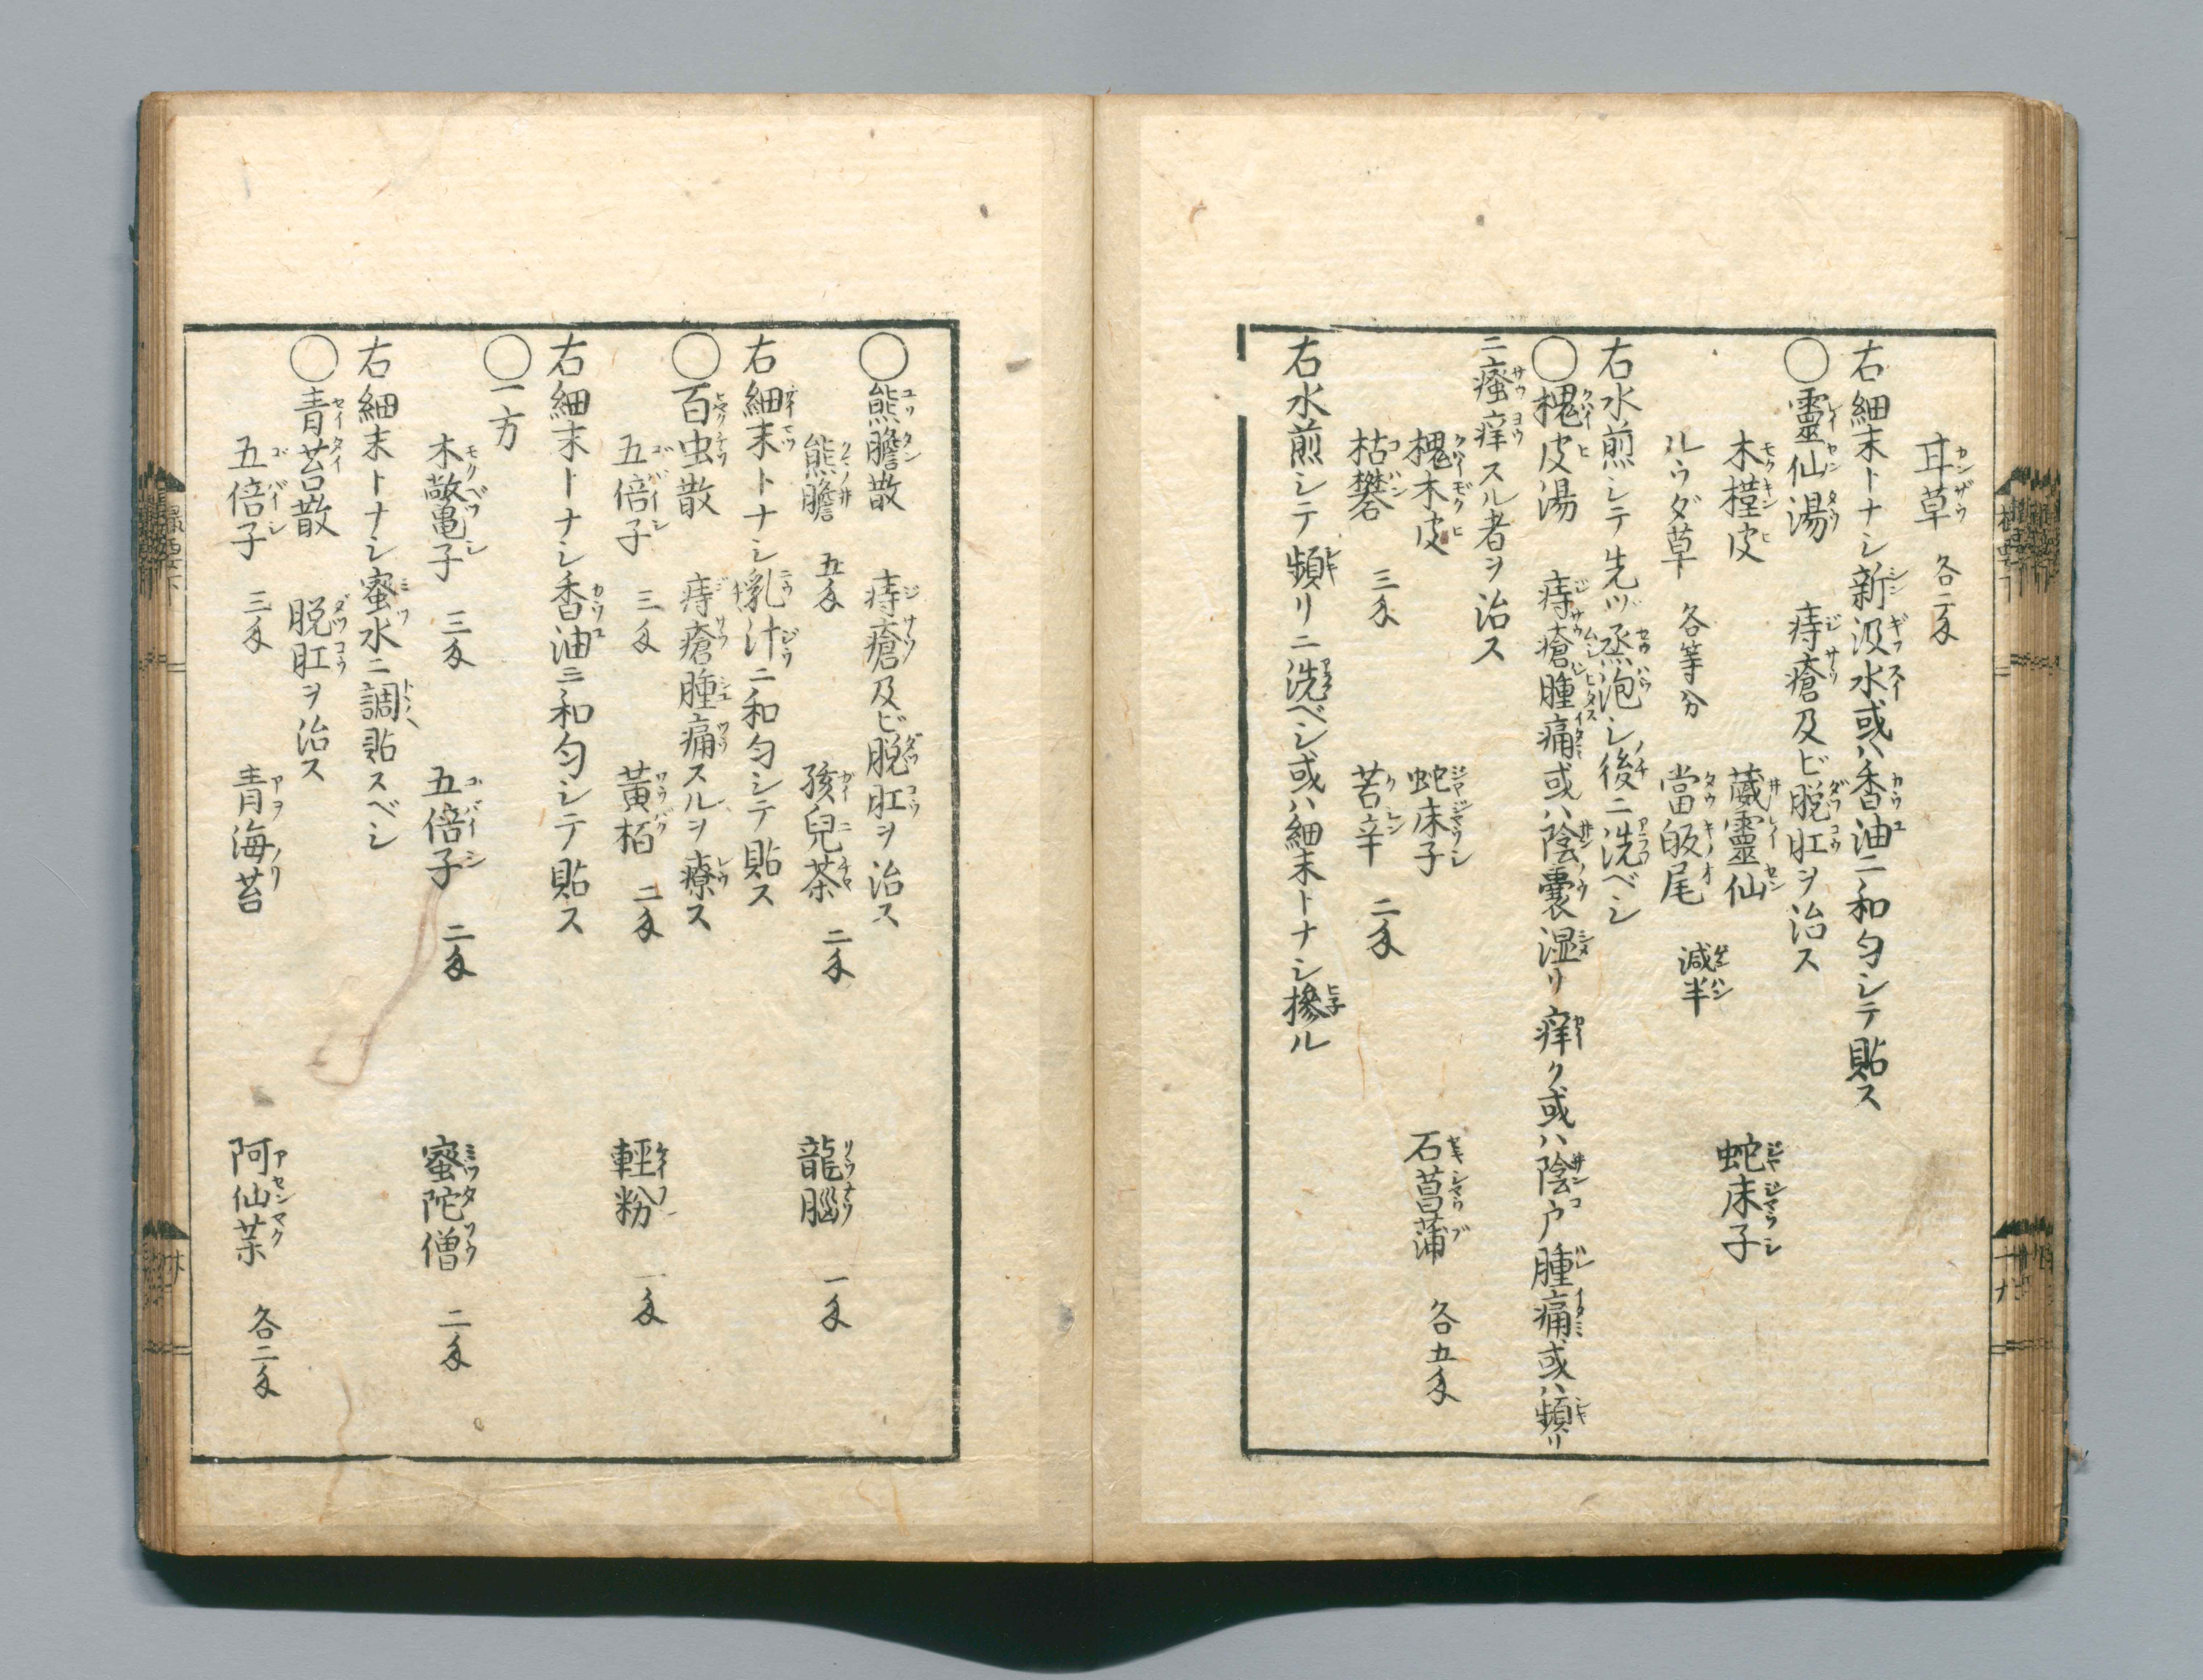 甘草 各二匁
右細末トナシ新汲水或ハ香油ニ和匀シテ貼ス
〇靈仙湯 痔瘡及ビ脱肛ヲ治ス
木槿皮 葳靈仙 蛇床子
ルウダ草 各等分 當皈尾 減半
右水煎シテ先ヅ蒸泡シ後ニ洗ベシ
〇槐皮湯 痔瘡腫痛或ハ陰嚢湿リ痒ク或ハ陰戸腫痛或ハ頻リ
ニ瘙痒スル者ヲ治ス
槐木皮 蛇床子 石菖蒲 各五匁
枯礬 三匁 苦辛 二匁
右水煎シテ頻リニ洗ベシ或ハ細末トナシ摻ル
〇熊膽散 痔瘡及ビ脱肛ヲ治ス
熊膽 五匁 孩兒茶 二匁 龍腦 一匁
右細末トナシ乳汁ニ和匀シテ貼ス
〇百虫散 痔瘡腫痛スルヲ療ス
五倍子 三匁 黃栢 二匁 輕粉 一匁
右細末トナシ香油ニ和匀シテ貼ス
〇一方
木鼈子 三匁 五倍子 二匁 蜜陀僧 二匁
右細末トナシ蜜水ニ調貼スベシ
〇青苔散 脱肛ヲ治ス
五倍子 三匁 青海苔 阿仙藥 各二匁